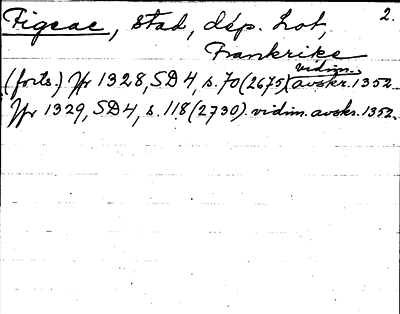 Figeac, stad, dép. Lot, 2.
Frankrike
(forts.) Yfr 1328, SD 4, s. 70 (2675) (vidim. avskr. 1352.
Yfr 1329, SD 4, s. 118 (2730). vidim. avskr. 1352.